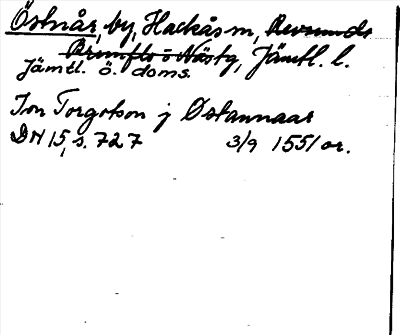 Östnår, by, Hackås sn, Revsunds
Brunflo o Näs tg, Jämtl. l.
Jämtl. ö. doms.
Jon Torgotson j Østannaar
DN 15, s. 727 3/9 1551 or.